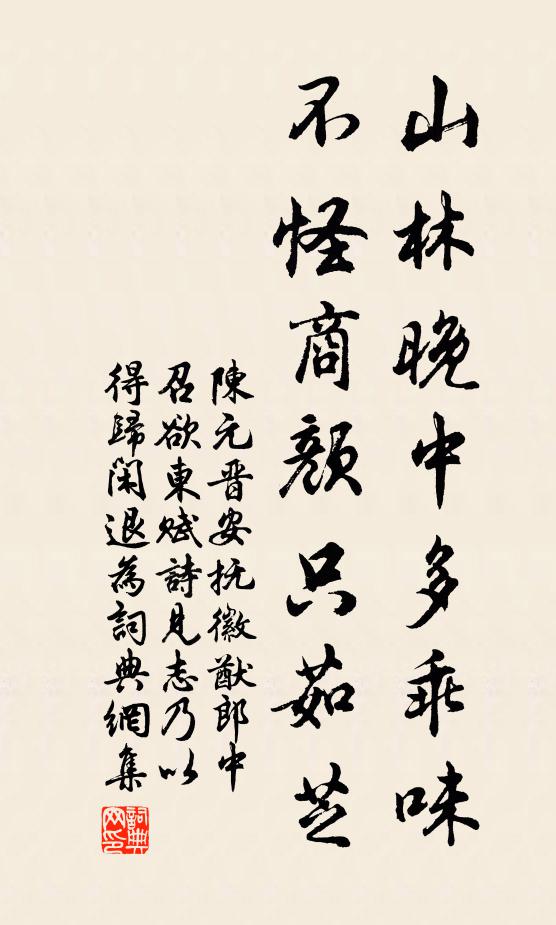 山林晚中多乖味
不怪商顏只茹芝
陳元晋安抚徽猷郎中
召欲東赋詩見志乃以
得歸閑退為詞典網集
詞典
网印